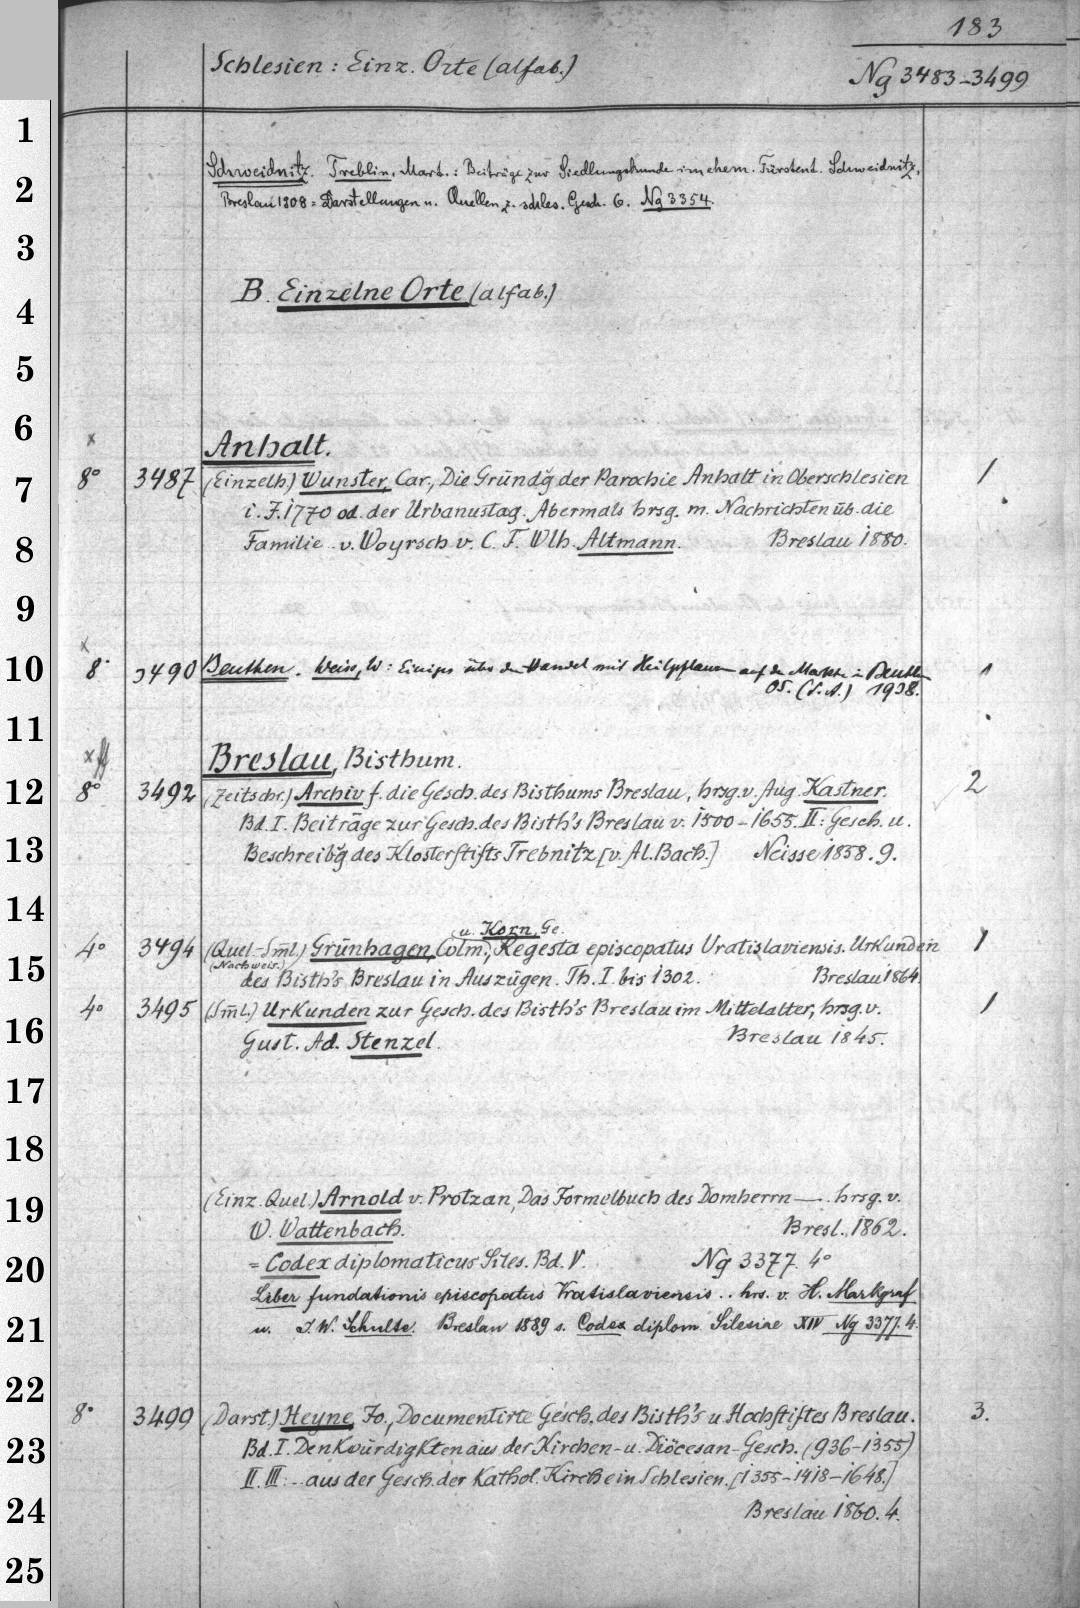 183
Schlesien : Einz. Orte (alfab.)
Ng 3483-3499
Schweidnitz. Treblin, Mart.: Beiträge zur Siedlungskunde im ehem. Fürstent. Schweidnitz,
Breslau 1908 = Darstellungen u. Quellen z. schles. Gesch. 6. Ng 3354.
B. Einzelne Orte (alfab.)
x
Anhalt.
8° 3487 (Einzelh.) Wunster, Car., Die Gründg̃ der Parochie Anhalt in Oberschlesien 1
i. J. 1770 od. der Urbanustag. Abermals hrsg. m. Nachrichten üb. die
Familie v. Woyrsch v. C. F. Wlh. Altmann. Breslau 1880.
x
8° 3490 Beuthen. Weiss, W: Einiges über den Handel mit Heilpflanzen auf dem Markte in Beuthen 1
OS. (S.A.) 1938.
x
Breslau, Bisthum.
8° 3492 (Zeitschr.) Archiv f. die Gesch. des Bisthums Breslau, hrsg. v. Aug. Kastner. 2
Bd. I. Beiträge zur Gesch. des Bisth's Breslau v. 1500-1655. II: Gesch. u.
Beschreibg̃ des Klosterstifts Trebnitz [v. Al. Bach.] Neisse 1858. 9.
u. Korn, Ge.
4° 3494 (Quel.-Sm̃l.) Grünhagen, Colm., Regesta episcopatus Vratislaviensis. Urkunden 1
(Nachweis.) des Bisth's Breslau in Auszügen. Th. I. bis 1302. Breslau 1864.
4° 3495 (Sm̃l.) Urkunden zur Gesch. des Bisth's Breslau im Mittelalter, hrsg. v. 1
Gust. Ad. Stenzel. Breslau 1845.
(Einz. Quel.) Arnold v. Protzan, Das Formelbuch des Domherrn —. hrsg. v.
W. Wattenbach. Bresl. 1862.
= Codex diplomaticus Siles. Bd. V. Ng 3377 4°
Liber fundationis episcopatus Vratislaviensis .. hrs. v. H. Markgraf
u. J. W. Schulte. Breslau 1889 s. Codex diplom. Silesiae XIV Ng 3377. 4.
8° 3499 (Darst.) Heyne, Jo., Documentirte Gesch. des Bisth's u. Hochstiftes Breslau. 3.
Bd. I. Denkwürdigkten aus der Kirchen- u. Diöcesan-Gesch. (936-1355)
II. III: - aus der Gesch. der Kathol. Kirche in Schlesien. [1355-1418-1648.]
Breslau 1860. 4.
1
2
3
4
5
6
7
8
9
10
11
12
13
14
15
16
17
18
19
20
21
22
23
24
25